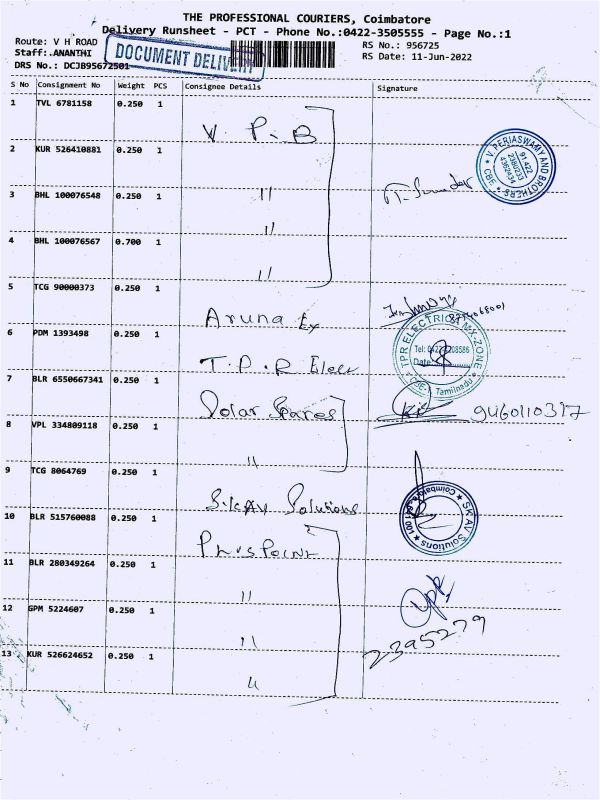 THE PROFESSIONAL COURIERS, Coimbatore
Delivery Runsheet - PCT - Phone No.:0422-3505555 - Page No.:1
Route: V H ROAD
RS No.: 956725
Staff: ANANTHI
RS Date: 11-Jun-2022
DRS No.: DCJB95672501
DOCUMENT DELIVERY
S No Consignment No Weight PCS Consignee Details Signature
1 TVL 6781158 0.250 1
V. P. B
2 KUR 526410881 0.250 1
V. PERIASWAMY AND BROTHERS
CBE
91-422
2380233
4362434
3 BHL 100076548 0.250 1
"
4 BHL 100076567 0.700 1
"
"
5 TCG 90000373 0.250 1
Aruna Ex
6 PDM 1393498 0.250 1
TPR ELECTRICA MX-ZONE
Date
CBE Tamilnadu
T.P.R Elect
7 BLR 6550667341 0.250 1
Solar Spares
9460110317
8 VPL 334809118 0.250 1
"
9 TCG 8064769 0.250 1
S.K.AV Solutions
SK AV Solutions
Coimbatore 641 001
10 BLR 515760088 0.250 1
Plus Point
11 BLR 280349264 0.250 1
"
12 GPM 5224607 0.250 1
"
2395279
13 KUR 526624652 0.250 1
"